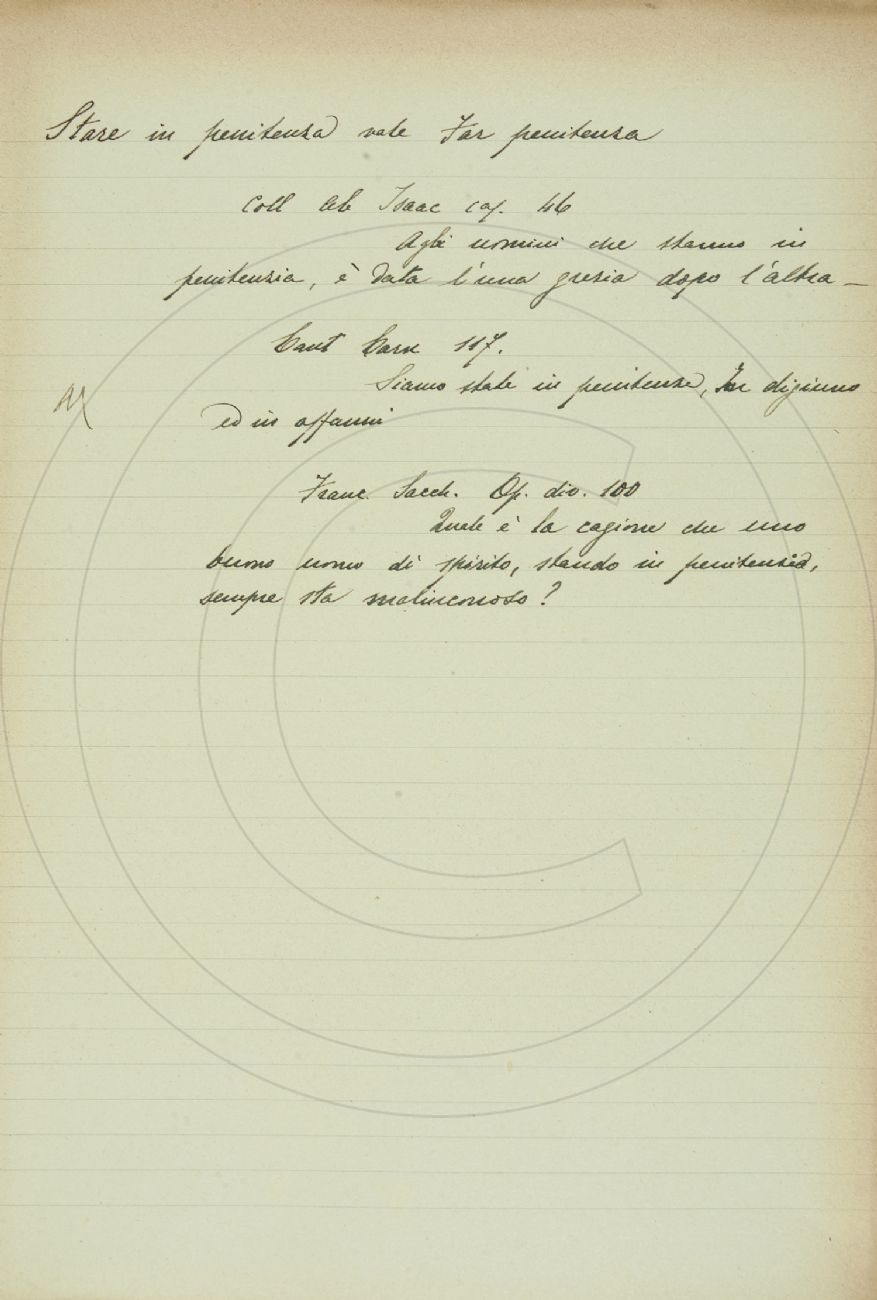 Stare in penitenza vale Far penitenza
Coll Ab Isaac cap. 46
Agli uomini che stanno in
penitenzia, è data l'una grazia dopo l'altra –
Cant Carn 117.
Siamo state in penitenza, In digiuno
ed in affanni
Franc. Sacch. Op. div. 100
Quale è la cagione che uno
buono uomo di spirito, stando in penitenzia,
sempre sta malinconoso?